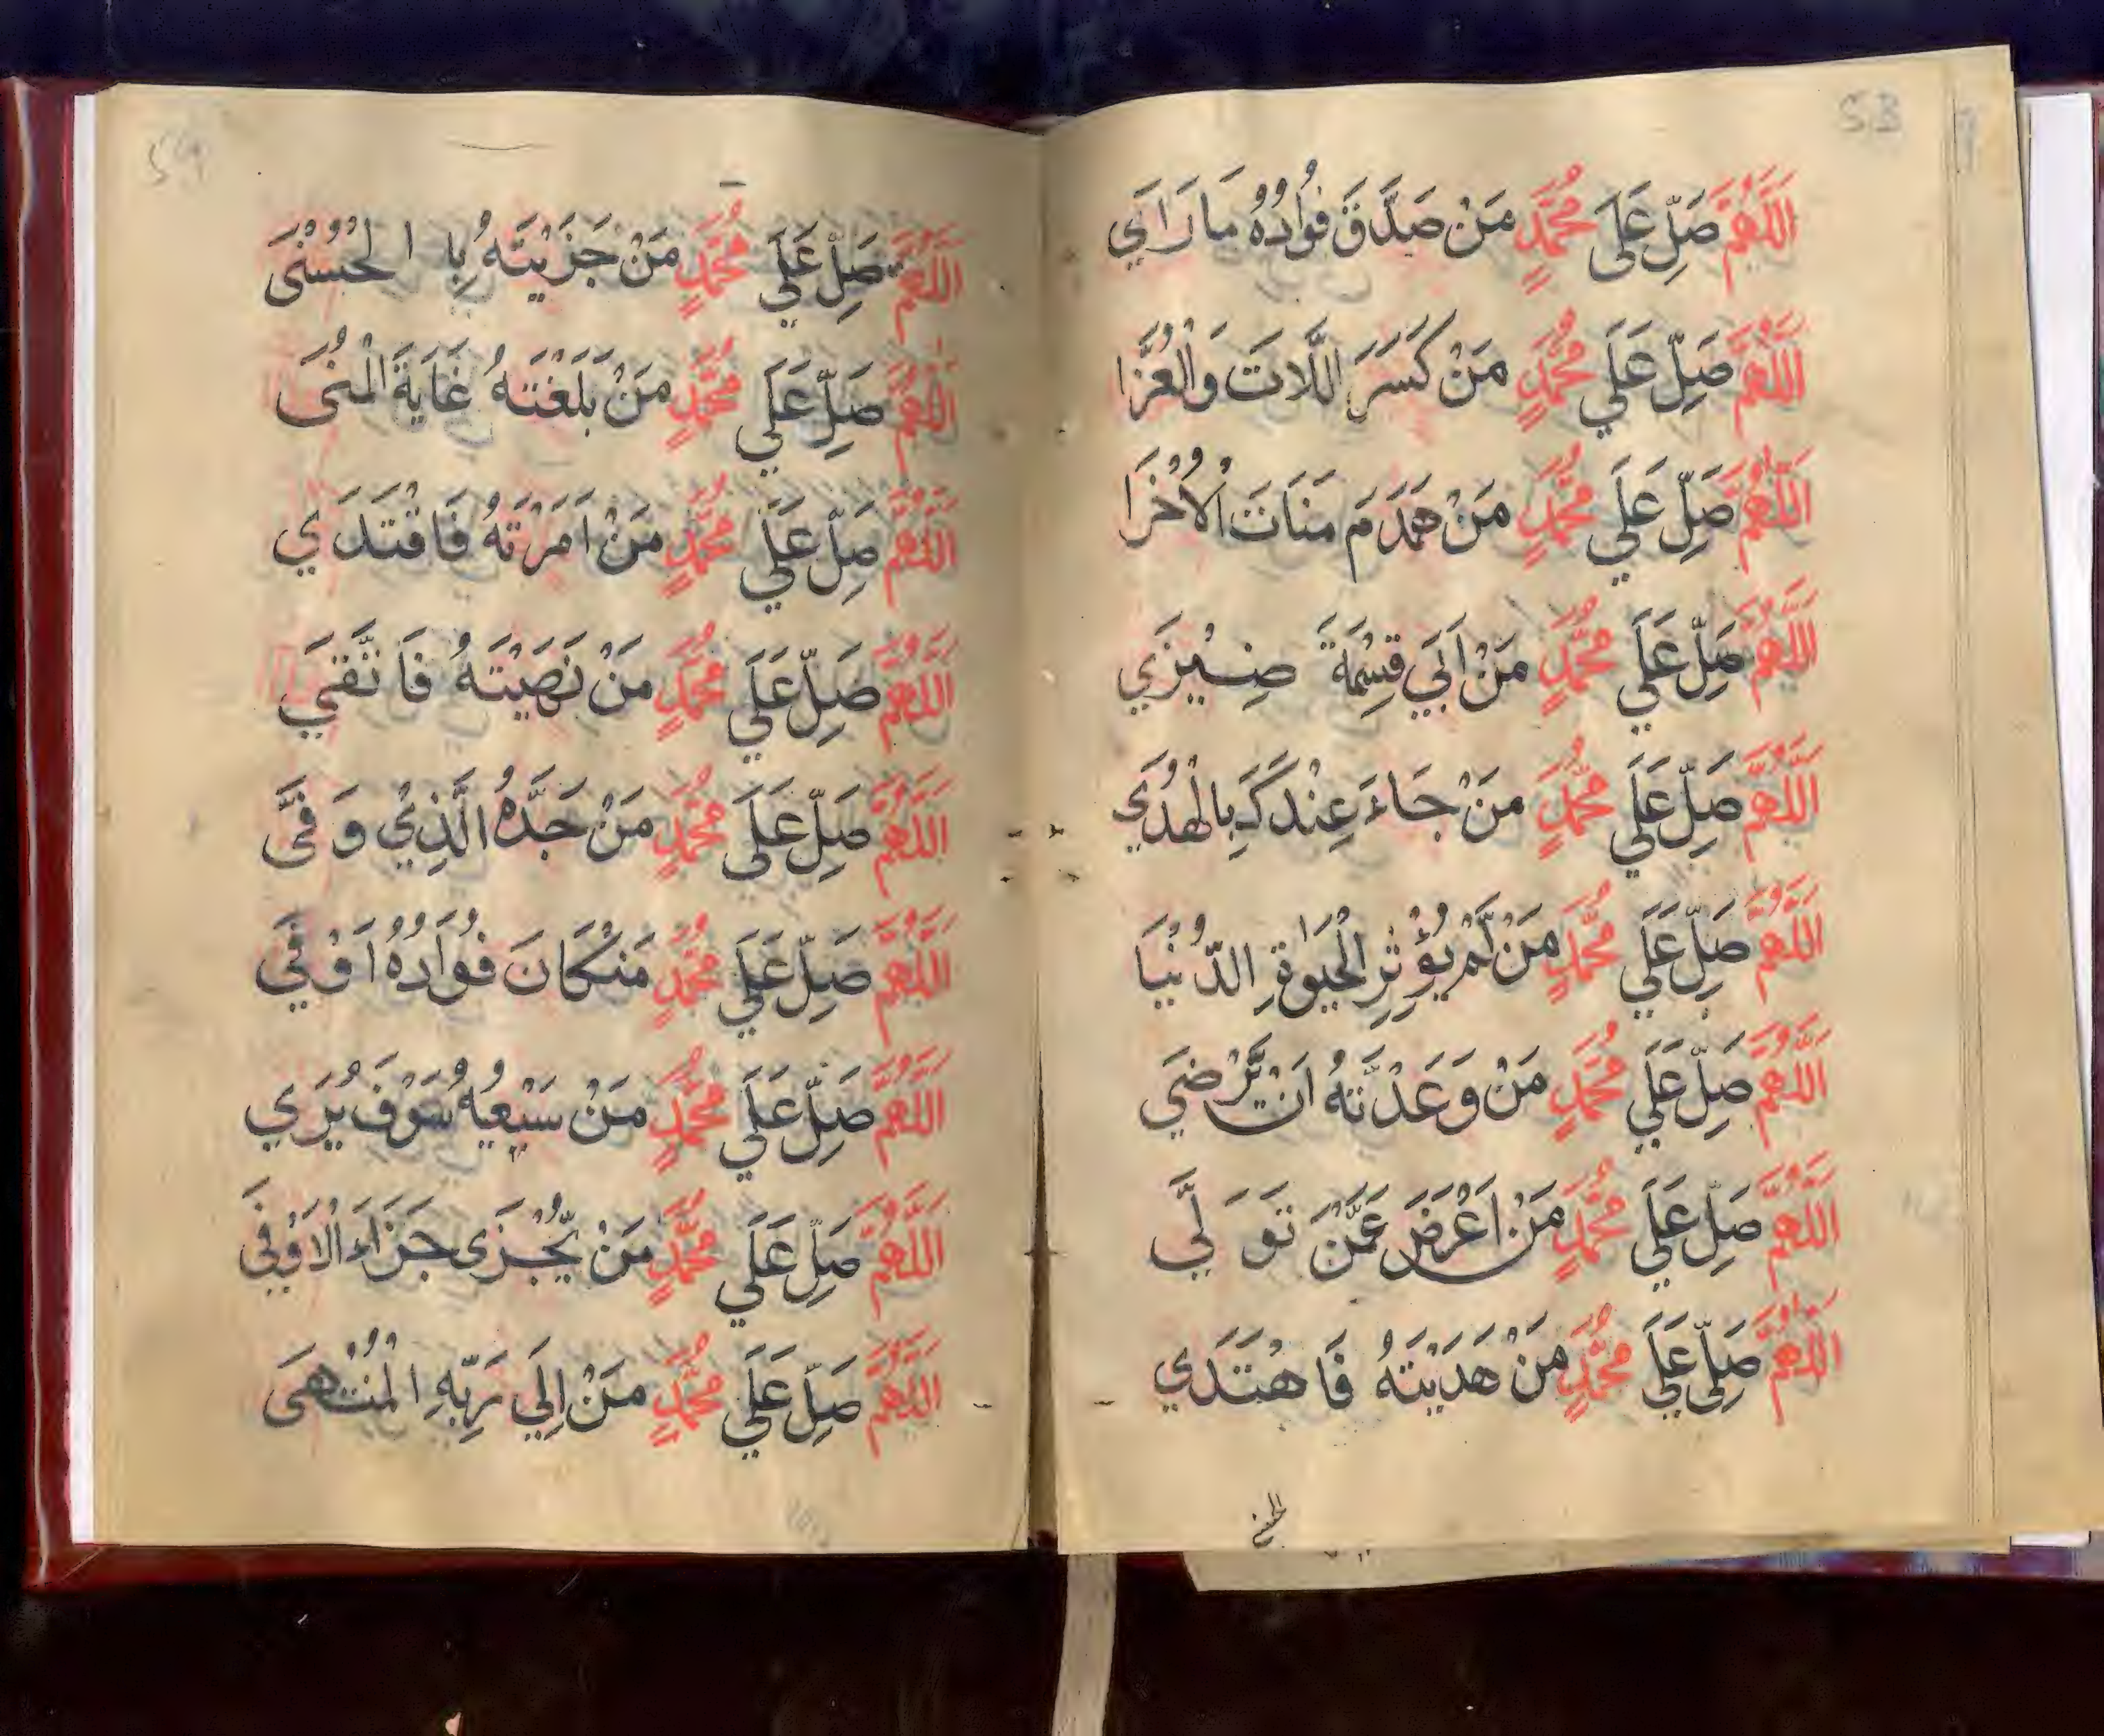 53
اَللّٰهُمَّ صَلِّ عَلَى مُحَمَّدٍ مَنْ صَدَّقَ فُوَادُهُ مَا رَاَي
اَللّٰهُمَّ صَلِّ عَلَي مُحَمَّدٍ مَنْ كَسَرَ اللَّاتَ وَالْعُزَّا
اَللّٰهُمَّ صَلِّ عَلَي مُحَمَّدٍ مَنْ هَدَمَ مَنَاتَ الْاُخْرَا
اَللّٰهُمَّ صَلِّ عَلَي مُحَمَّدٍ مَنْ اَبَي قِسْمَةً ضِيْزَي
اَللّٰهُمَّ صَلِّ عَلَي مُحَمَّدٍ مَنْ جَاءَ عِنْدَكَ بِالْهُدَي
اَللّٰهُمَّ صَلِّ عَلَي مُحَمَّدٍ مَنْ لَّمْ يُؤْثِرِ الْحَيٰوةِ الدُّنْيَا
اَللّٰهُمَّ صَلِّ عَلَي مُحَمَّدٍ مَنْ وَعَدْتَّهُ اَنْ يَّرْضَي
اَللّٰهُمَّ صَلِّ عَلَي مُحَمَّدٍ مَنْ اَعْرَضَ عَمَّنْ تَوَلَّي
اَللّٰهُمَّ صَلِّي عَلَي مُحَمَّدٍ مَنْ هَدَيْتَهُ فَاهْتَدَي
54
اَللّٰهُمَّ صَلِّ عَلَي مُحَمَّدٍ مَنْ جَزَيْتَهُ بِا الْحُسْنٰى
اَللّٰهُمَّ صَلِّ عَلَي مُحَمَّدٍ مَنْ بَلَغْتَهُ غَايَةَ الْمُنَى
اَللّٰهُمَّ صَلِّ عَلَي مُحَمَّدٍ مَنْ اَمَرْتَهُ فَاقْتَدَي
اَللّٰهُمَّ صَلِّ عَلَي مُحَمَّدٍ مَنْ نَهَيْتَهُ فَا
اَللّٰهُمَّ صَلِّ عَلَى مُحَمَّدٍ مَنْ جَدُّهُ الَّذِيْ وَفَّى
اَللّٰهُمَّ صَلِّ عَلَي مُحَمَّدٍ مَنْ كَانَ فُوَادُهُ اَوْفَي
اَللّٰهُمَّ صَلِّ عَلَي مُحَمَّدٍ مَنْ سَعْيُهُ سَوْفَ يُرَي
اَللّٰهُمَّ صَلِّ عَلَي مُحَمَّدٍ مَنْ يُّجْزَى جَزَاءَ الْاَوْفَى
اَللّٰهُمَّ صَلِّ عَلَي مُحَمَّدٍ مَنْ اِلَي رَبِّهِ الْمُنْتَهَى